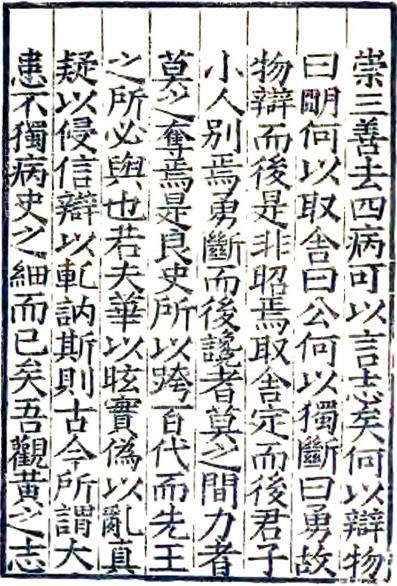 崇三善去四病可以言志矣何以辯物
曰明何以取舍曰公何以獨斷曰勇故
物辯而後是非昭焉取舍定而後君子
小人别焉勇斷而後讒者莫之間力者
莫之奪焉是良史所以跨百代而先王
之所必與也若夫華以眩實偽以亂真
疑以侵信辯以亂訥斯則古今所謂大
患不獨病史之細而已矣吾觀黃之志